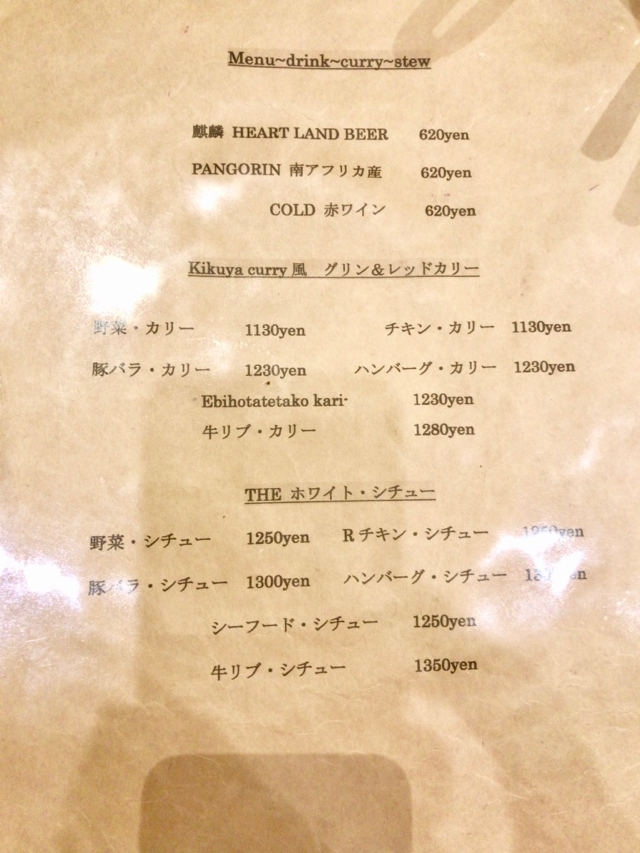 Menu~drink~curry~stew
麒麟 HEART LAND BEER 620yen
PANGORIN 南アフリカ産 620yen
COLD 赤ワイン 620yen
Kikuya curry風 グリン&レッドカリー
野菜・カリー 1130yen チキン・カリー 1130yen
豚バラ・カリー 1230yen ハンバーグ・カリー 1230yen
Ebihotatetako kari- 1230yen
牛リブ・カリー 1280yen
THE ホワイト・シチュー
野菜・シチュー 1250yen Rチキン・シチュー
豚バラ・シチュー 1300yen ハンバーグ・シチュー
シーフード・シチュー 1250yen
牛リブ・シチュー 1350yen